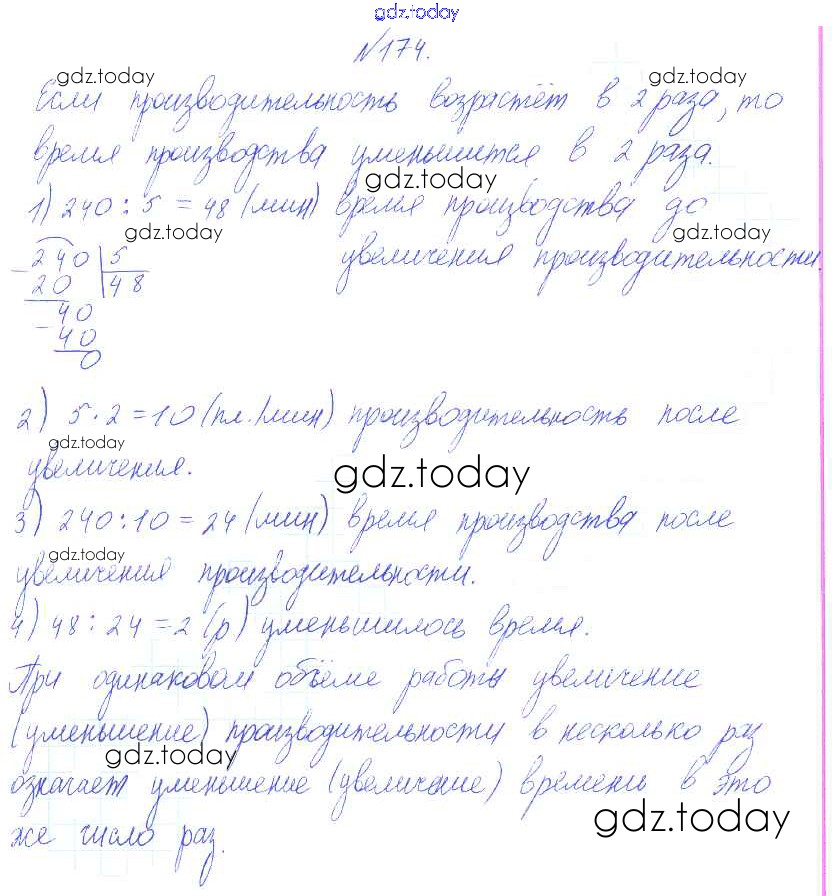 gdz.today
№174.
gdz.today gdz.today
Если производительность возрастёт в 2 раза, то
время производства уменьшится в 2 раза.
gdz.today
1) 240 : 5 = 48 (мин) время производства до
gdz.today gdz.today
увеличения производительности.
- 240 | 5
20 | 48
40
- 40
0
2) 5 · 2 = 10 (пл./мин) производительность после
gdz.today
увеличения.
gdz.today
3) 240 : 10 = 24 (мин) время производства после
gdz.today
увеличения производительности.
4) 48 : 24 = 2 (р) уменьшилось время.
При одинаковом объёме работы увеличение
(уменьшение) производительности в несколько раз
gdz.today
означает уменьшение (увеличение) времени в это
же число раз.
gdz.today